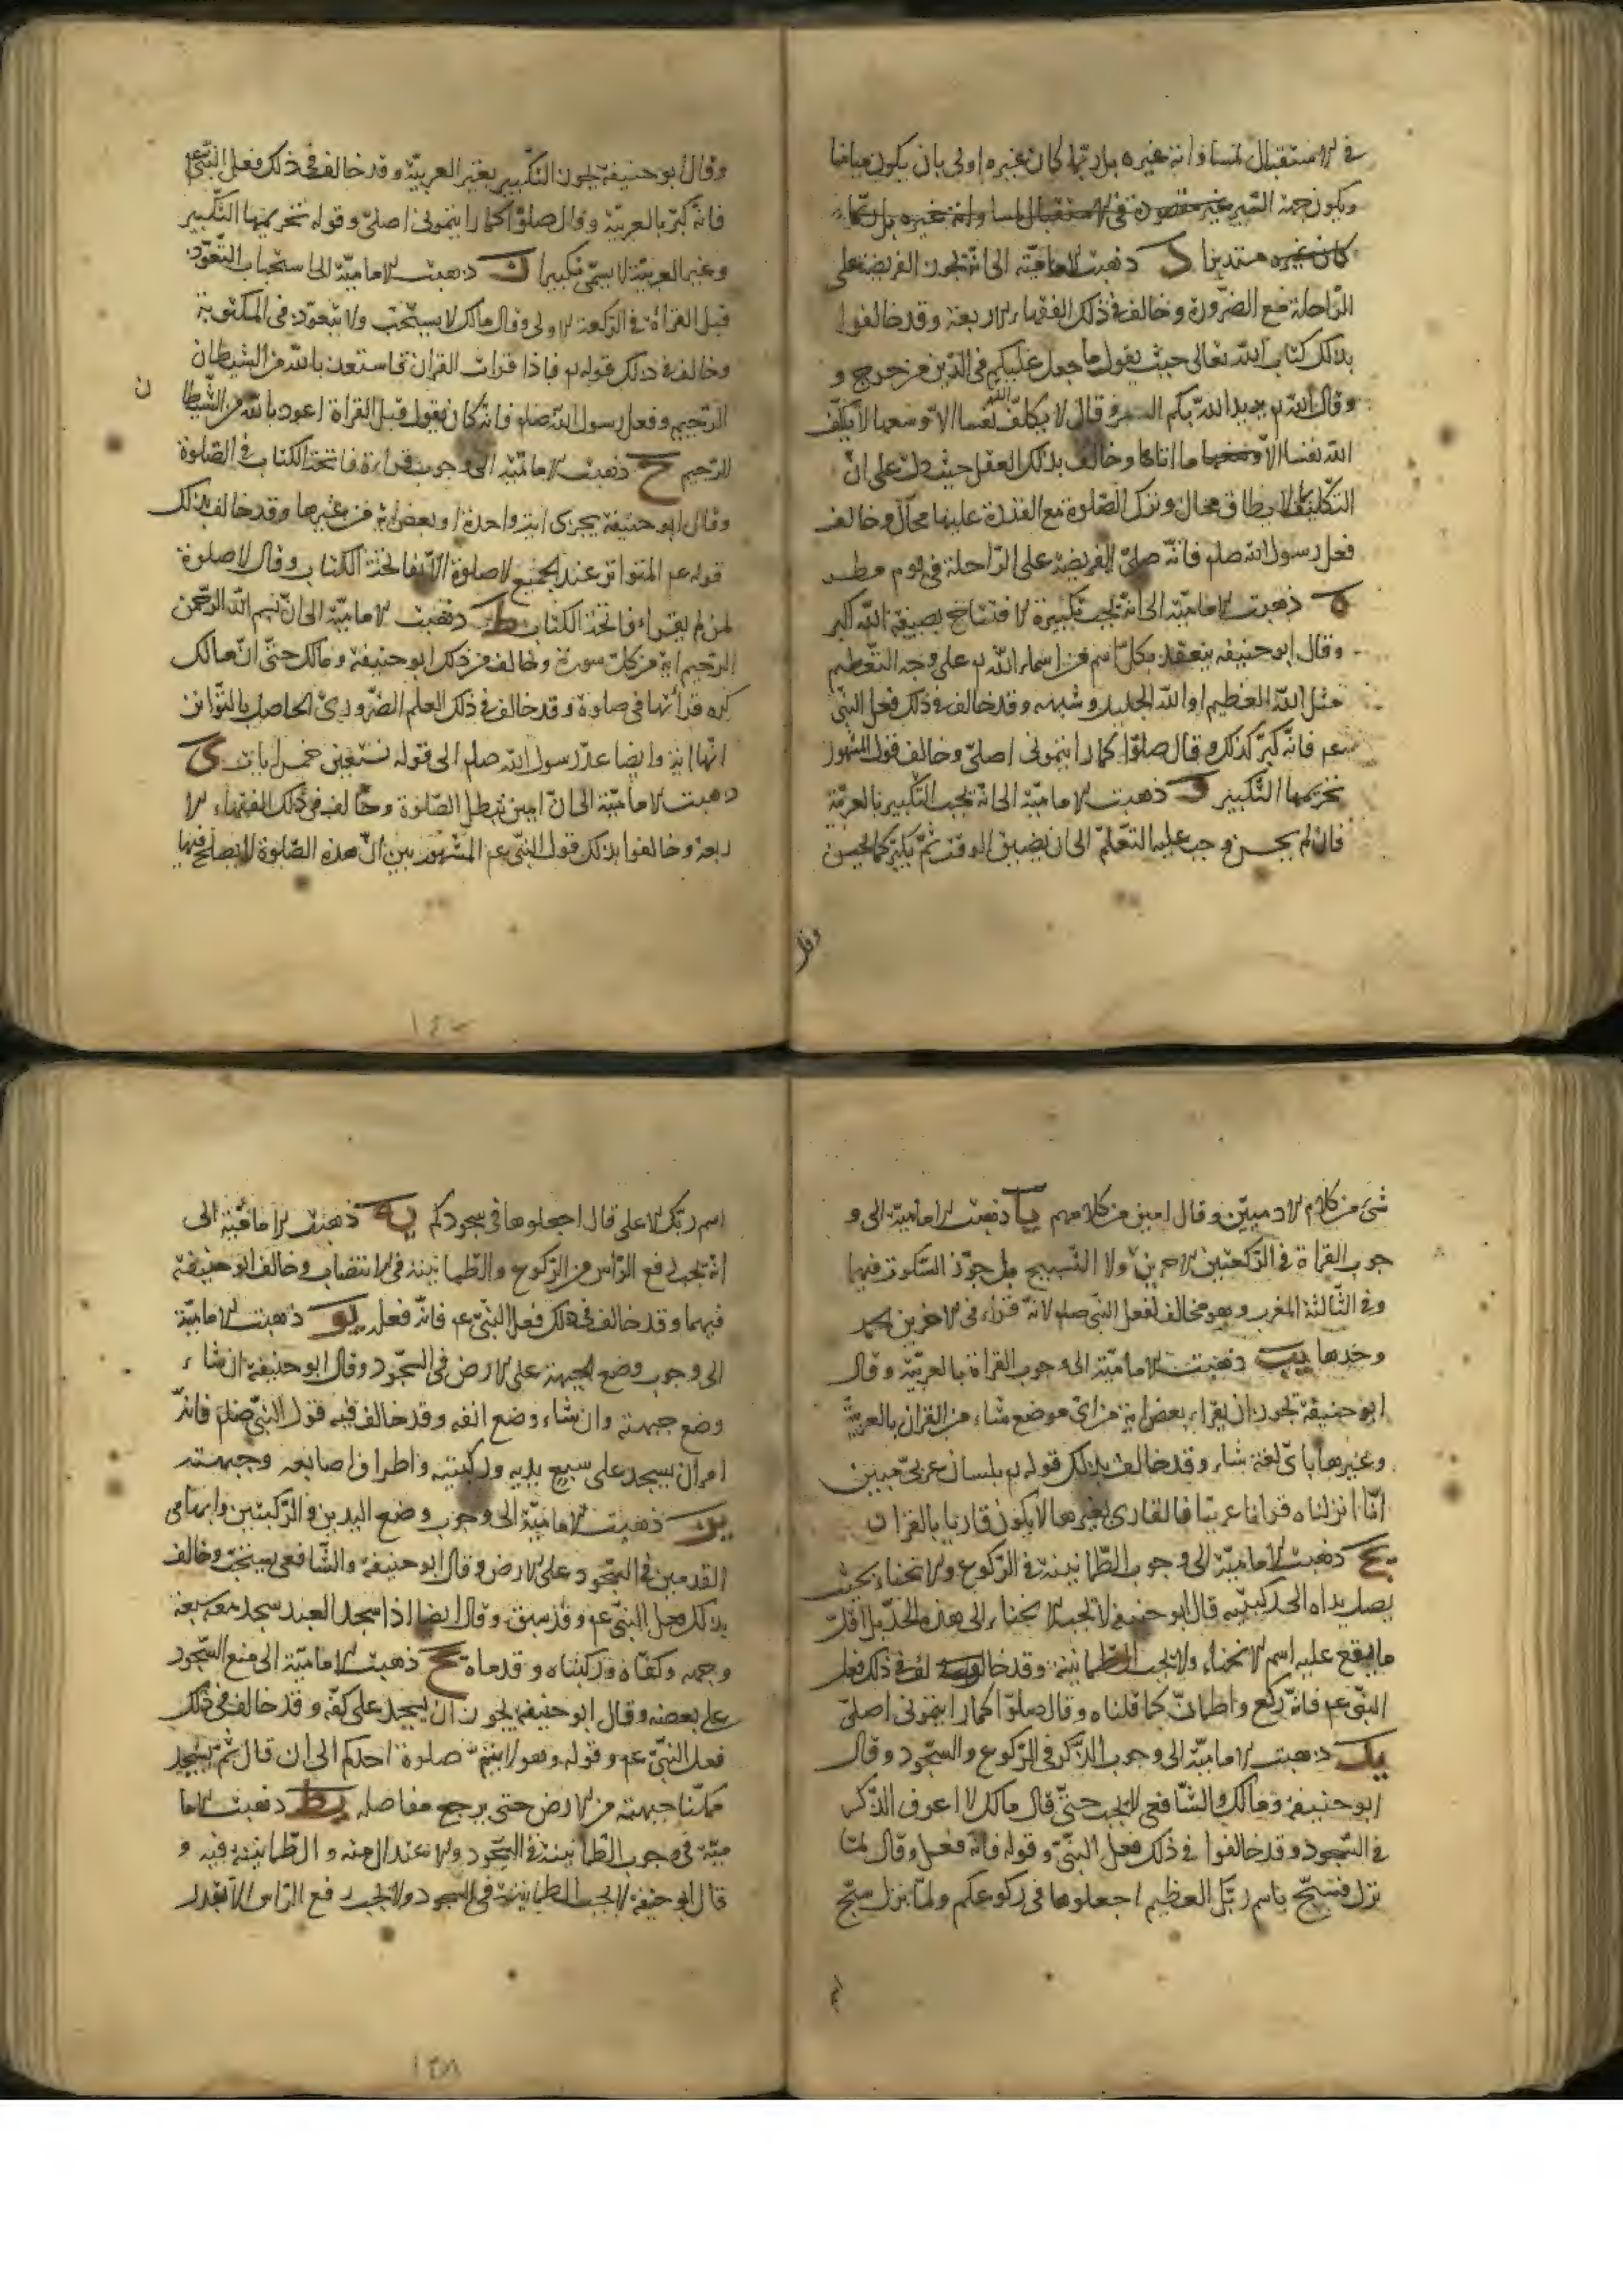 في الاستقبال لمساواته غيره بل ربما كان غيره اولى بان يكون مباينا
ويكون جهة القبر غير مقصودة في الاستقبال لمساواته غيره بل ربما
كان غيره مستدبرا د ذهبت الامامية الى انه تجوز الفريضة على
الراحلة مع الضرورة وخالف في ذلك الفقهاء الاربعة وقد خالفوا
بذلك كتاب الله تعالى حيث يقول ما جعل عليكم في الدين من حرج و
وقال الله يريد الله بكم اليسر وقال لا يكلف الله نفسا الا وسعها لا يكلف
الله نفسا الا وسعها ما اتاها وخالف بذلك العقل حيث دل على ان
التكليف بما لا يطاق محال وترك الصلوة مع القدرة عليها محال وخالف
فعل رسول الله صلم فانه صلى الفريضة على الراحلة في يوم مطير
ه ذهبت الامامية الى انه تجب تكبيرة الافتتاح بصيغة الله اكبر
وقال ابو حنيفه ينعقد بكل اسم من اسماء الله على وجه التعظيم
مثل الله العظيم او الله الجليل وشبهه وقد خالف في ذلك فعل النبي
عم فانه كبر كذلك وقال صلوا كما رايتموني اصلي وخالف قوله المشهور
تحريمها التكبير و ذهبت الامامية الى انه يجب التكبير بالعربية
فان لم يحسن وجب عليه التعلم الى ان يضيق الوقت ثم يكبر كما يحسن
وقال
وقال ابو حنيفة يجوز التكبير بغير العربية وقد خالف في ذلك فعل النبي عم
فانه كبر بالعربية وقال صلوا كما رايتموني اصلي وقوله تحريمها التكبير
وغير العربية لا يسمى تكبيرا ز ذهبت الامامية الى استحباب التعوذ
قبل القراة في الركعة الاولى وقال مالك لا يستحب ولا يتعوذ في المكتوبة
وخالف في ذلك قوله فاذا قرات القران فاستعذ بالله من الشيطان
الرجيم وفعل رسول الله صلم فانه كان يقول قبل القراة اعوذ بالله من الشيطا
ن
الرجيم ح ذهبت الامامية الى وجوب قراءة فاتحة الكتاب في الصلوة
وقال ابو حنيفة يجزى اية واحدة او بعض اية من غيرها وقد خالف بذلك
قوله عم المتواتر عند الجميع لا صلوة الا بفاتحة الكتاب وقال لا صلوة
لمن لم يقراء فاتحة الكتاب ط ذهبت الامامية الى ان بسم الله الرحمن
الرحيم اية من كل سورة وخالف في ذلك ابو حنيفة ومالك حتى ان مالك
كره قرأتها في صلوة وقد خالف في ذلك العلم الضروري الحاصل بالتواتر
انها اية وايضا عد رسول الله صلم الى قوله نستعين خمس ايات ى
ذهبت الامامية الى ان امين تبطل الصلوة وخالف في ذلك الفقهاء الا
ربعة وخالفوا بذلك قول النبي عم المشهور بين ان هذه الصلوة لا يصلح فيها
١٤٠
شئ من كلام الادميين وقال امين من كلامهم يا ذهبت الامامية الى و
جوب القراة في الركعتين الاخرين ولا التسبيح بل جوز السكوت فيهما
وفي الثالثة المغرب وهو مخالف لفعل النبي صلم لانه قراء في الاخرين الحمد
وحدها يب ذهبت الامامية الى وجوب القراة بالعربية وقال
ابو حنيفة تجوز ان يقراء بعض اية من اى موضع شاء من القران بالعربية
وغيرها باى لغة شاء وقد خالف بذلك قوله بلسان عربى مبين
انا انزلناه قرانا عربيا فالقارى بغيرها لا يكون قاريا بالقران
يج ذهبت الامامية الى وجوب الطمانينة في الركوع والانحناء بحيث
يصل يداه الى ركبتيه قال ابو حنيفه لا تجب الانحناء الى هذه الحد بل اقل
ما يقع عليه اسم الانحناء ولا يجب الطمانينة وقد خالف في ذلك فعل
النبي عم فانه ركع واطمان كما قلناه وقال صلوا كما رايتموني اصلي
يد ذهبت الامامية الى وجوب الذكر في الركوع والسجود وقال
ابو حنيفة ومالك والشافعي لا يجب حتى قال مالك لا اعرف الذكر
في السجود وقد خالفوا في ذلك فعل النبي وقوله فانه فعل وقال لما
نزل فسبح باسم ربك العظيم اجعلوها في ركوعكم ولما نزل سبح
اسم ربك الاعلى قال اجعلوها في سجودكم يه ذهبت الامامية الى
انه يجب رفع الراس من الركوع والطمانينة في الانتصاب وخالف ابو حنيفة
فيهما وقد خالف في ذلك فعل النبي عم فانه فعله يو ذهبت الامامية
الى وجوب وضع الجبهة على الارض في السجود وقال ابو حنيفة ان شاء
وضع جبهته وان شاء وضع انفه وقد خالف فيه قول النبي صلم فانه
امر ان يسجد على سبع يديه وركبتيه واطراف اصابعه وجبهته
يز ذهبت الامامية الى وجوب وضع اليدين والركبتين وابهامى
القدمين في السجود على الارض وقال ابو حنيفة والشافعي يستحب وخالف
بذلك فعل النبي عم وقد سبق وقال ايضا اذا سجد العبد سجد معه سبعة
وجهه وكفاه وركبتاه وقدماه يح ذهبت الامامية الى منع السجود
على بعضه وقال ابو حنيفه يجوز ان يسجد على كفه وقد خالف في ذلك
فعل النبي عم وقوله وهو لا يتم صلوة احدكم الى ان قال ثم يسجد
ممكنا جبهته من الارض حتى يرجع مفاصله يط ذهبت الاما
مية في وجوب الطمانينة في السجود والاعتدال منه والطمانينة فيه و
قال ابو حنيفة لا يجب الطمانينة في السجود ولا يجب رفع الراس الا بقدر
١٣٨